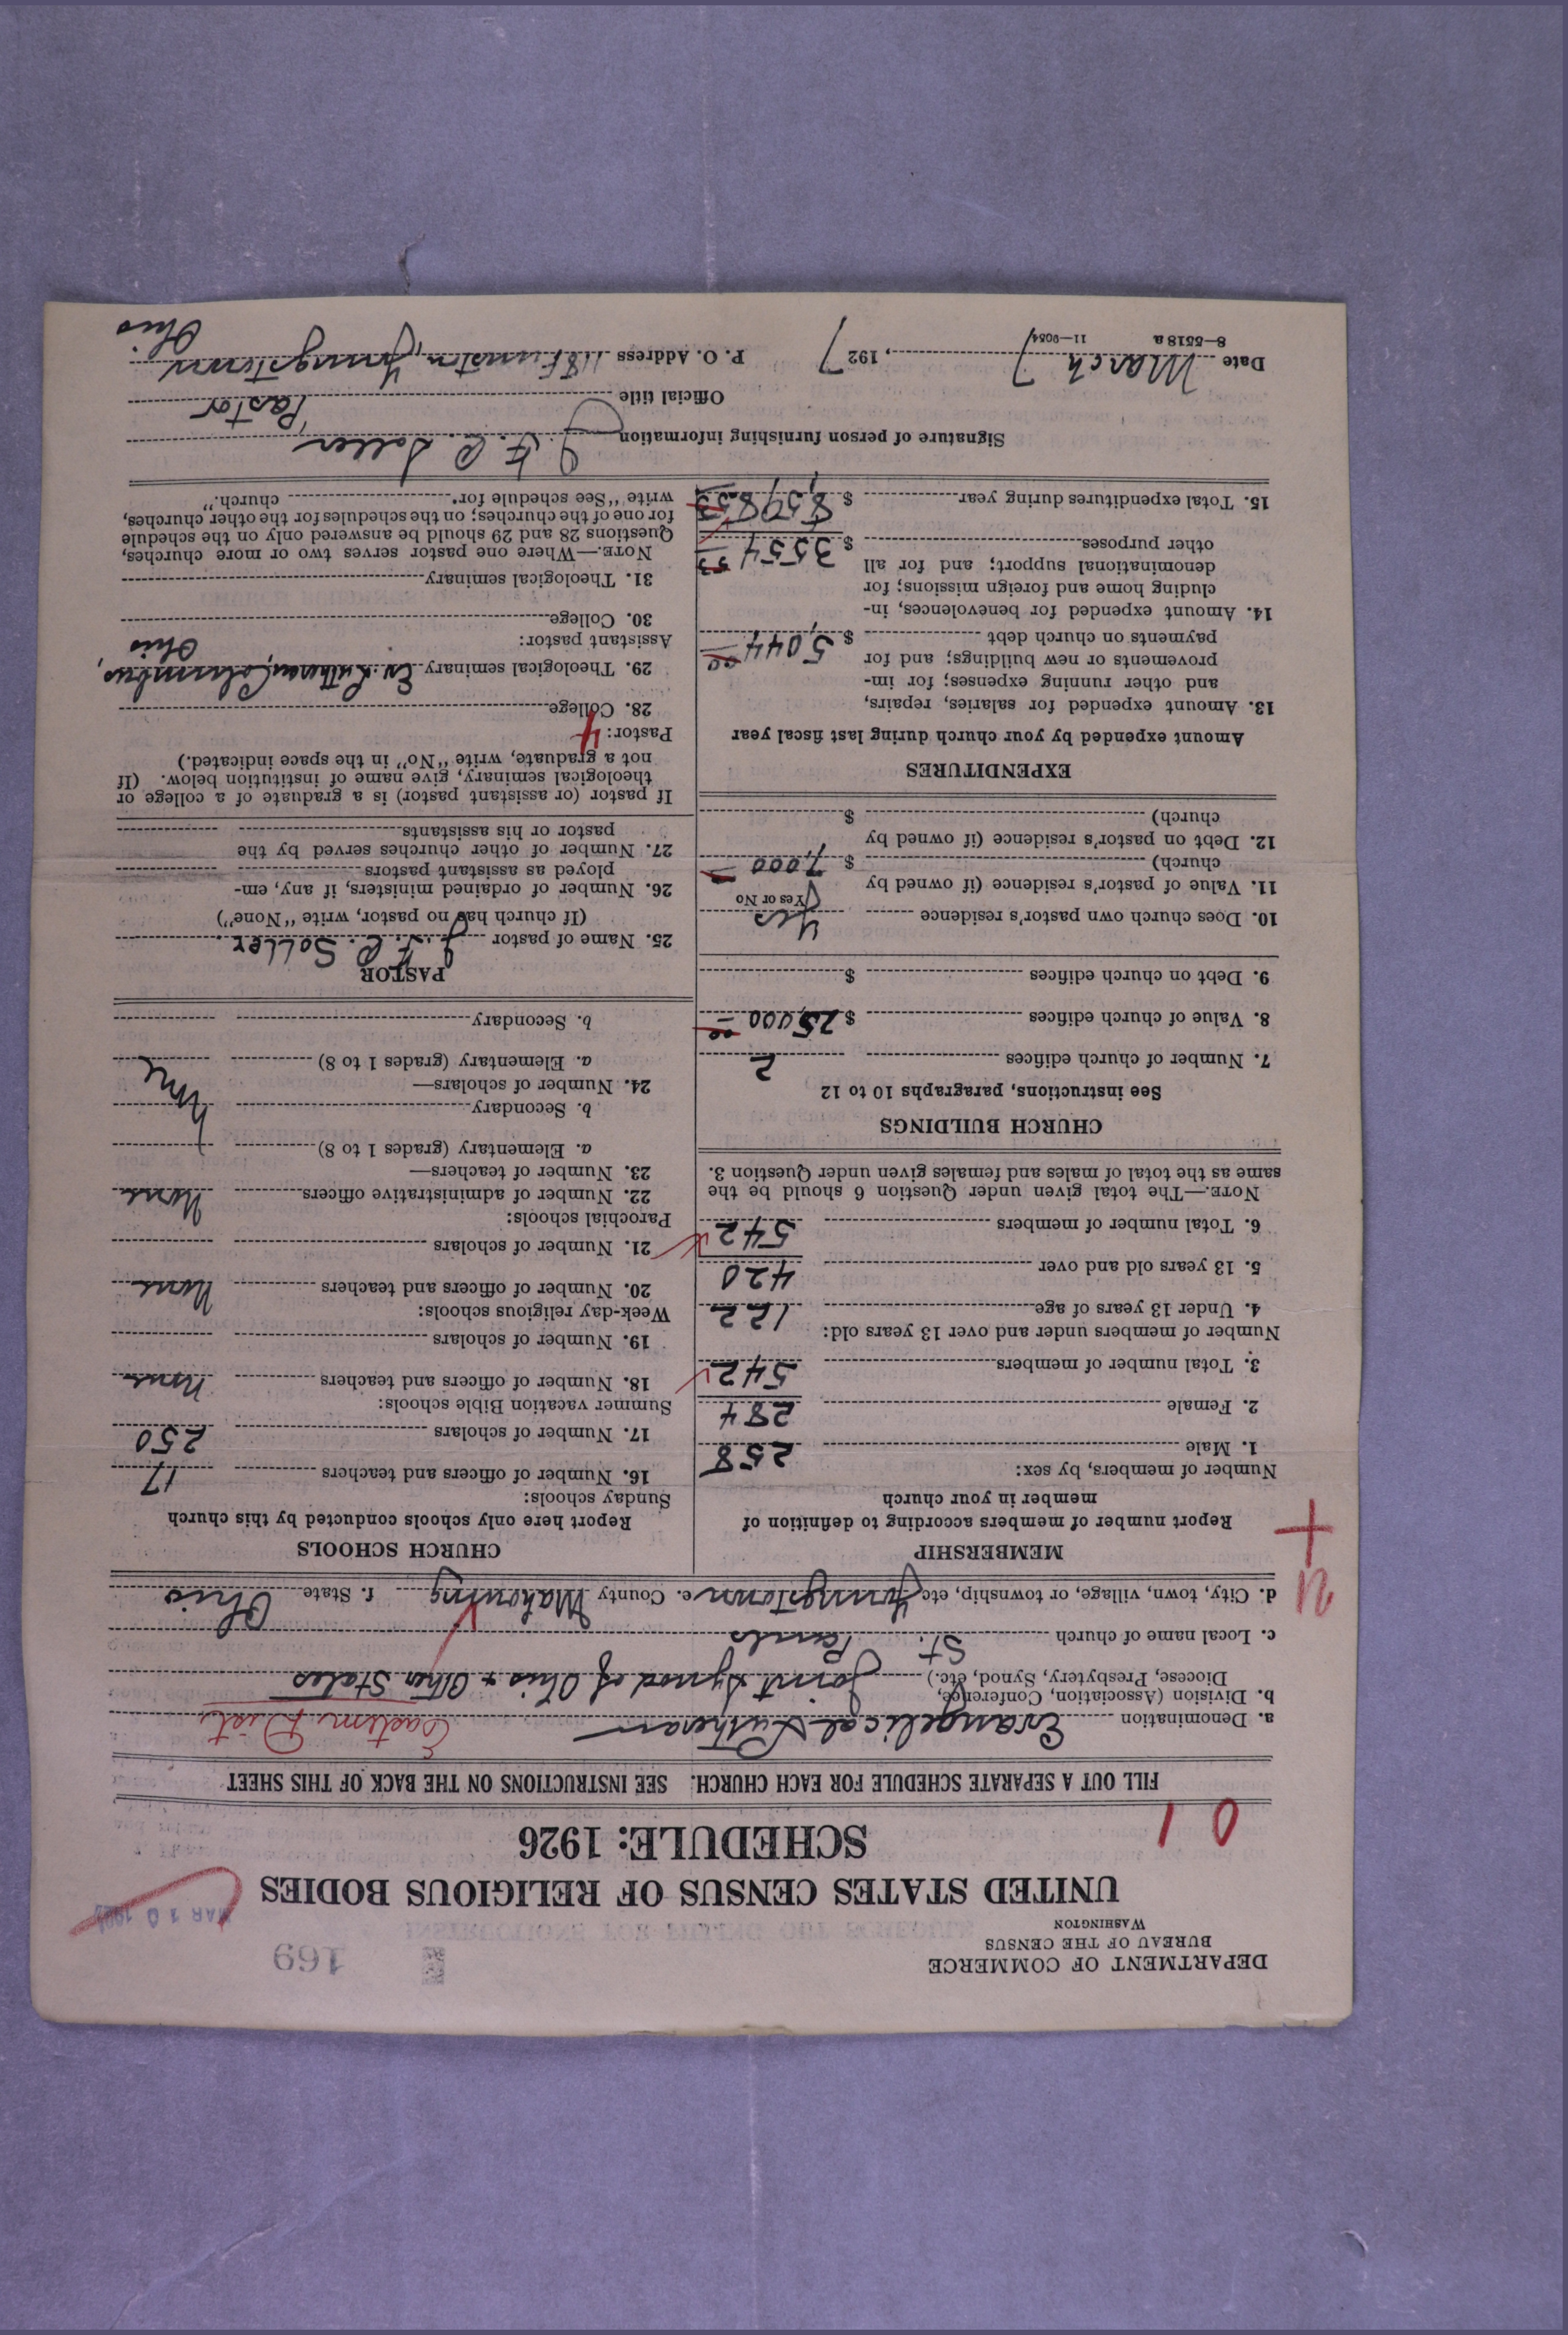 169
MAR 10 1927
DEPARTMENT OF COMMERCE
BUREAU OF THE CENSUS
WASHINGTON
UNITED STATES CENSUS OF RELIGIOUS BODIES
SCHEDULE: 1926
0 1
FILL OUT A SEPARATE SCHEDULE FOR EACH CHURCH. SEE INSTRUCTIONS ON THE BACK OF THIS SHEET
a. Denomination Evangelical Lutheran Eastern Dist.
b. Division (Association, Conference, Diocese, Presbytery, Synod, etc.) Joint Synod of Ohio + Other States
c. Local name of church St. Pauls
d. City, town, village, or township, etc. Youngstown e. County Mahoning f. State Ohio
MEMBERSHIP
Report number of members according to definition of
member in your church
Number of members, by sex:
1. Male 258
2. Female 284
3. Total number of members 542
Number of members under and over 13 years old:
4. Under 13 years of age 122
5. 13 years old and over 420
6. Total number of members 542
NOTE.—The total given under Question 6 should be the
same as the total of males and females given under Question 3.
CHURCH BUILDINGS
See instructions, paragraphs 10 to 12
7. Number of church edifices 2
8. Value of church edifices $ 25,000 00
9. Debt on church edifices $
10. Does church own pastor's residence Yes
(Yes or No
11. Value of pastor's residence (if owned by
church) $ 7,000
12. Debt on pastor's residence (if owned by
church) $
EXPENDITURES
Amount expended by your church during last fiscal year
13. Amount expended for salaries, repairs,
and other running expenses; for im-
provements or new buildings; and for
payments on church debt $ 5,044 00
14. Amount expended for benevolences, in-
cluding home and foreign missions; for
denominational support; and for all
other purposes $ 3554 53
15. Total expenditures during year $ 8,598 53
CHURCH SCHOOLS
Report here only schools conducted by this church
Sunday schools:
16. Number of officers and teachers 17
17. Number of scholars 250
Summer vacation Bible schools:
18. Number of officers and teachers None
19. Number of scholars
Week-day religious schools:
20. Number of officers and teachers None
21. Number of scholars
Parochial schools:
22. Number of administrative officers None
23. Number of teachers—
a. Elementary (grades 1 to 8)
b. Secondary
24. Number of scholars—
a. Elementary (grades 1 to 8)
b. Secondary
PASTOR
25. Name of pastor J. F. C. Soller
(If church has no pastor, write "None")
26. Number of ordained ministers, if any, em-
ployed as assistant pastors
27. Number of other churches served by the
pastor or his assistants
If pastor (or assistant pastor) is a graduate of a college or
theological seminary, give name of institution below. (If
not a graduate, write "No" in the space indicated.)
Pastor: 4
28. College
29. Theological seminary Ev. Lutheran, Columbus,
Ohio
Assistant pastor:
30. College
31. Theological seminary
NOTE.—Where one pastor serves two or more churches,
Questions 28 and 29 should be answered only on the schedule
for one of the churches; on the schedules for the other churches,
write "See schedule for church."
Signature of person furnishing information J. F. C. Soller
Official title Pastor
Date March 7, 1927 P. O. Address 118 Funston, Youngstown
Ohio
8—5518 a 11—9054